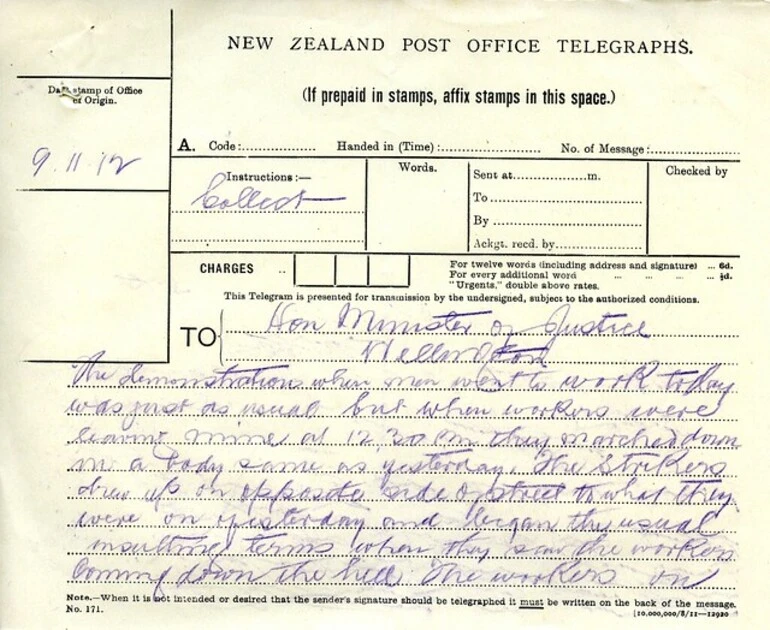 NEW ZEALAND POST OFFICE TELEGRAPHS.
(If prepaid in stamps, affix stamps in this space.)
Date stamp of Office
of Origin.
9.11.12
A. Code:
Handed in (Time):
No. of Message:
Instructions:—
Collect
Words.
Sent at m.
To
By
Ackgt. recd. by
Checked by
CHARGES ..
For twelve words (including address and signature) ... 6d.
For every additional word ... ... ... ½d.
"Urgents," double above rates.
This Telegram is presented for transmission by the undersigned, subject to the authorized conditions.
TO
Hon Minister of Justice
Wellington
The demonstrations when men went to work today
was just as usual but when workers were
leaving mine at 12.30 pm they marched down
in a body same as yesterday. The Strikers
drew up on opposite side of street to what they
were on yesterday and began the usual
insulting terms when they saw the workers
coming down the hill The workers on
Note.—When it is not intended or desired that the sender's signature should be telegraphed it must be written on the back of the message.
No. 171.
[10,000,000/8/11—12920